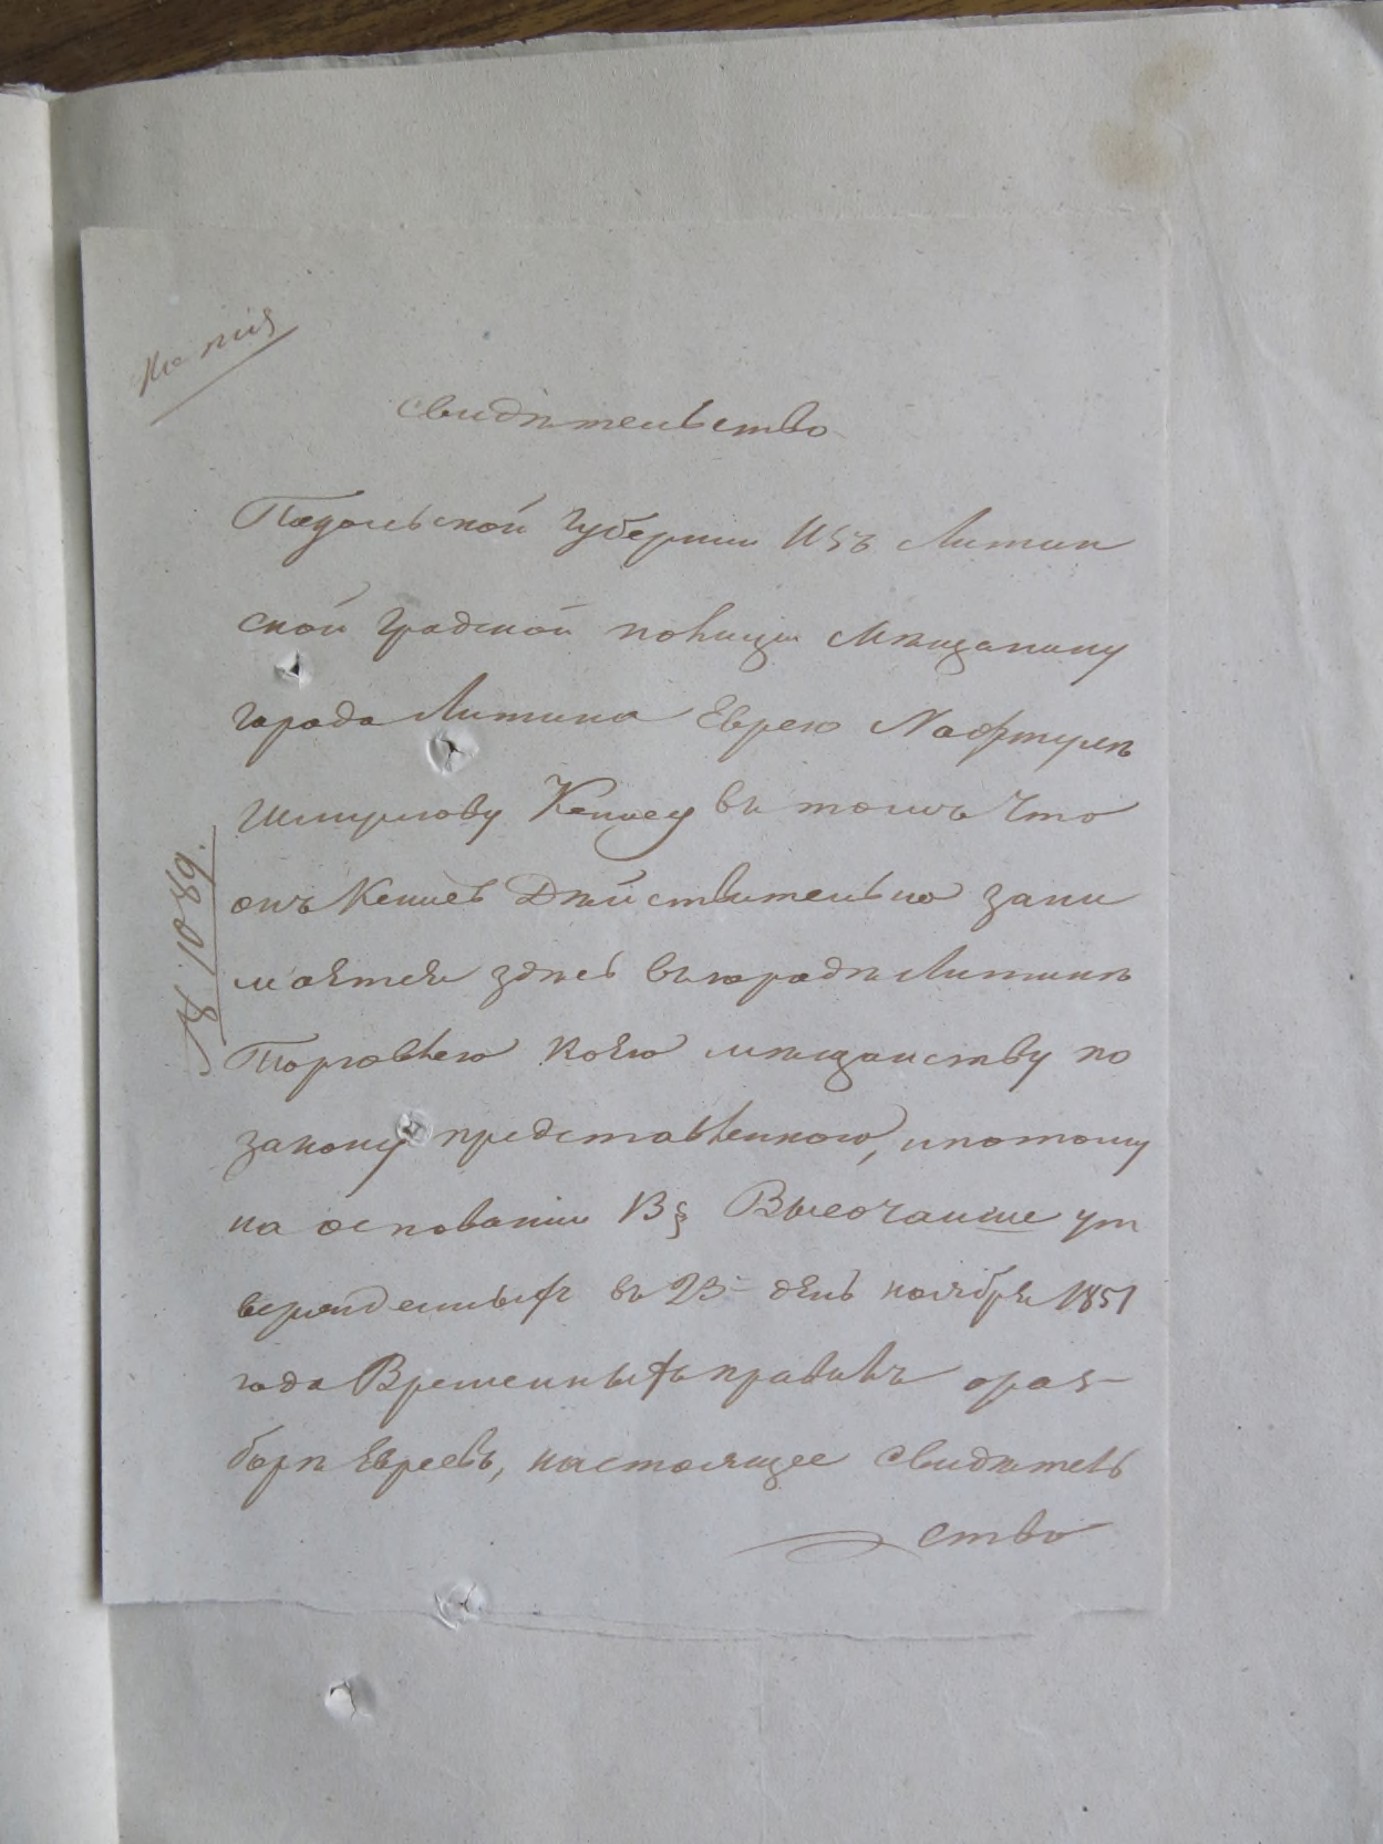 Копія
Свидѣтельство
Подольской Губерніи Изъ Литин
ской Градской полиціи Мѣщанину
города Литина Еврею Нафтулѣ
Шмулову въ томъ что
онъ Дѣйствительно зани
мается здѣсь въ городѣ Литинѣ
Торговлею коею мѣщанству по
закону предоставленною, и потому
на основаніи § Высочайше ут
вержденныхъ въ 23 день ноября 1851
года Временныхъ правилъ о раз-
борѣ Евреевъ, настоящее свидѣтель
ство
№ 1089.